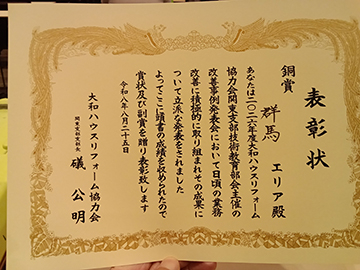 表彰状
銅賞
群馬 エリア殿
あなたは二〇二六年度大和ハウスリフォーム
協力会関東支部技術教育部会主催の
改善事例発表会において日頃の業務
改善に積極的に取り組まれその成果に
ついて立派な発表をされました
よってここに頭書の成績を収められたので
賞状及び副賞を贈り表彰致します
令和八年八月二十五日
大和ハウスリフォーム協力会
関東支部支部長
礒 公明